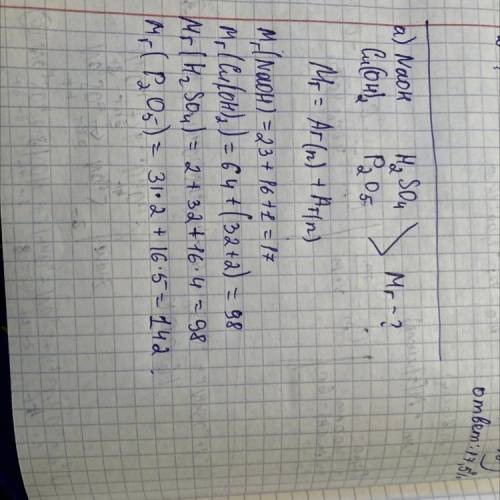 ответ: 17,5%
а) NaOH H₂SO₄
Cu(OH)₂ P₂O₅ > Mr - ?
Mr = Ar(n) + Ar(n)
Mr(NaOH) = 23 + 16 + 1 = 17
Mr(Cu(OH)₂) = 64 + (32 + 2) = 98
Mr(H₂SO₄) = 2 + 32 + 16·4 = 98
Mr(P₂O₅) = 31·2 + 16·5 = 142